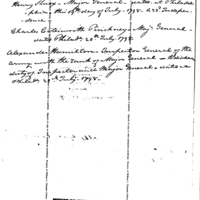 Henry Knox, Major General, dated at Philadel-
phia this 19th day of July 1798. & 23d Indepen-
dence
Charles Cotesworth Pinckney, Maj. General
dated Philada. 20th July 1798.
Alexander Hamilton, Inspector General of the
army with the rank of Major General
duty of Inspector and Major General, dated at
Philada. 20th July 1798.